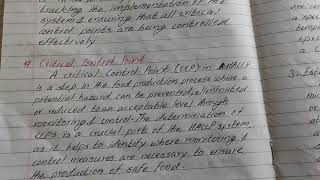 tracking the implementation of the
system & ensuring that all critical
control points are being controlled
effectively
# Critical Control Point
A critical control Point (CCP) in HACCP
is a step in the food production process where a
potential hazard can be prevented, eliminated
or reduced to an acceptable level through
monitoring & control. The determination of
CCPs is a crucial part of the HACCP system,
as it helps to identify where monitoring &
control measures are necessary to ensure
the production of safe food.
are co
a spec
temper
speci
a
3. Est